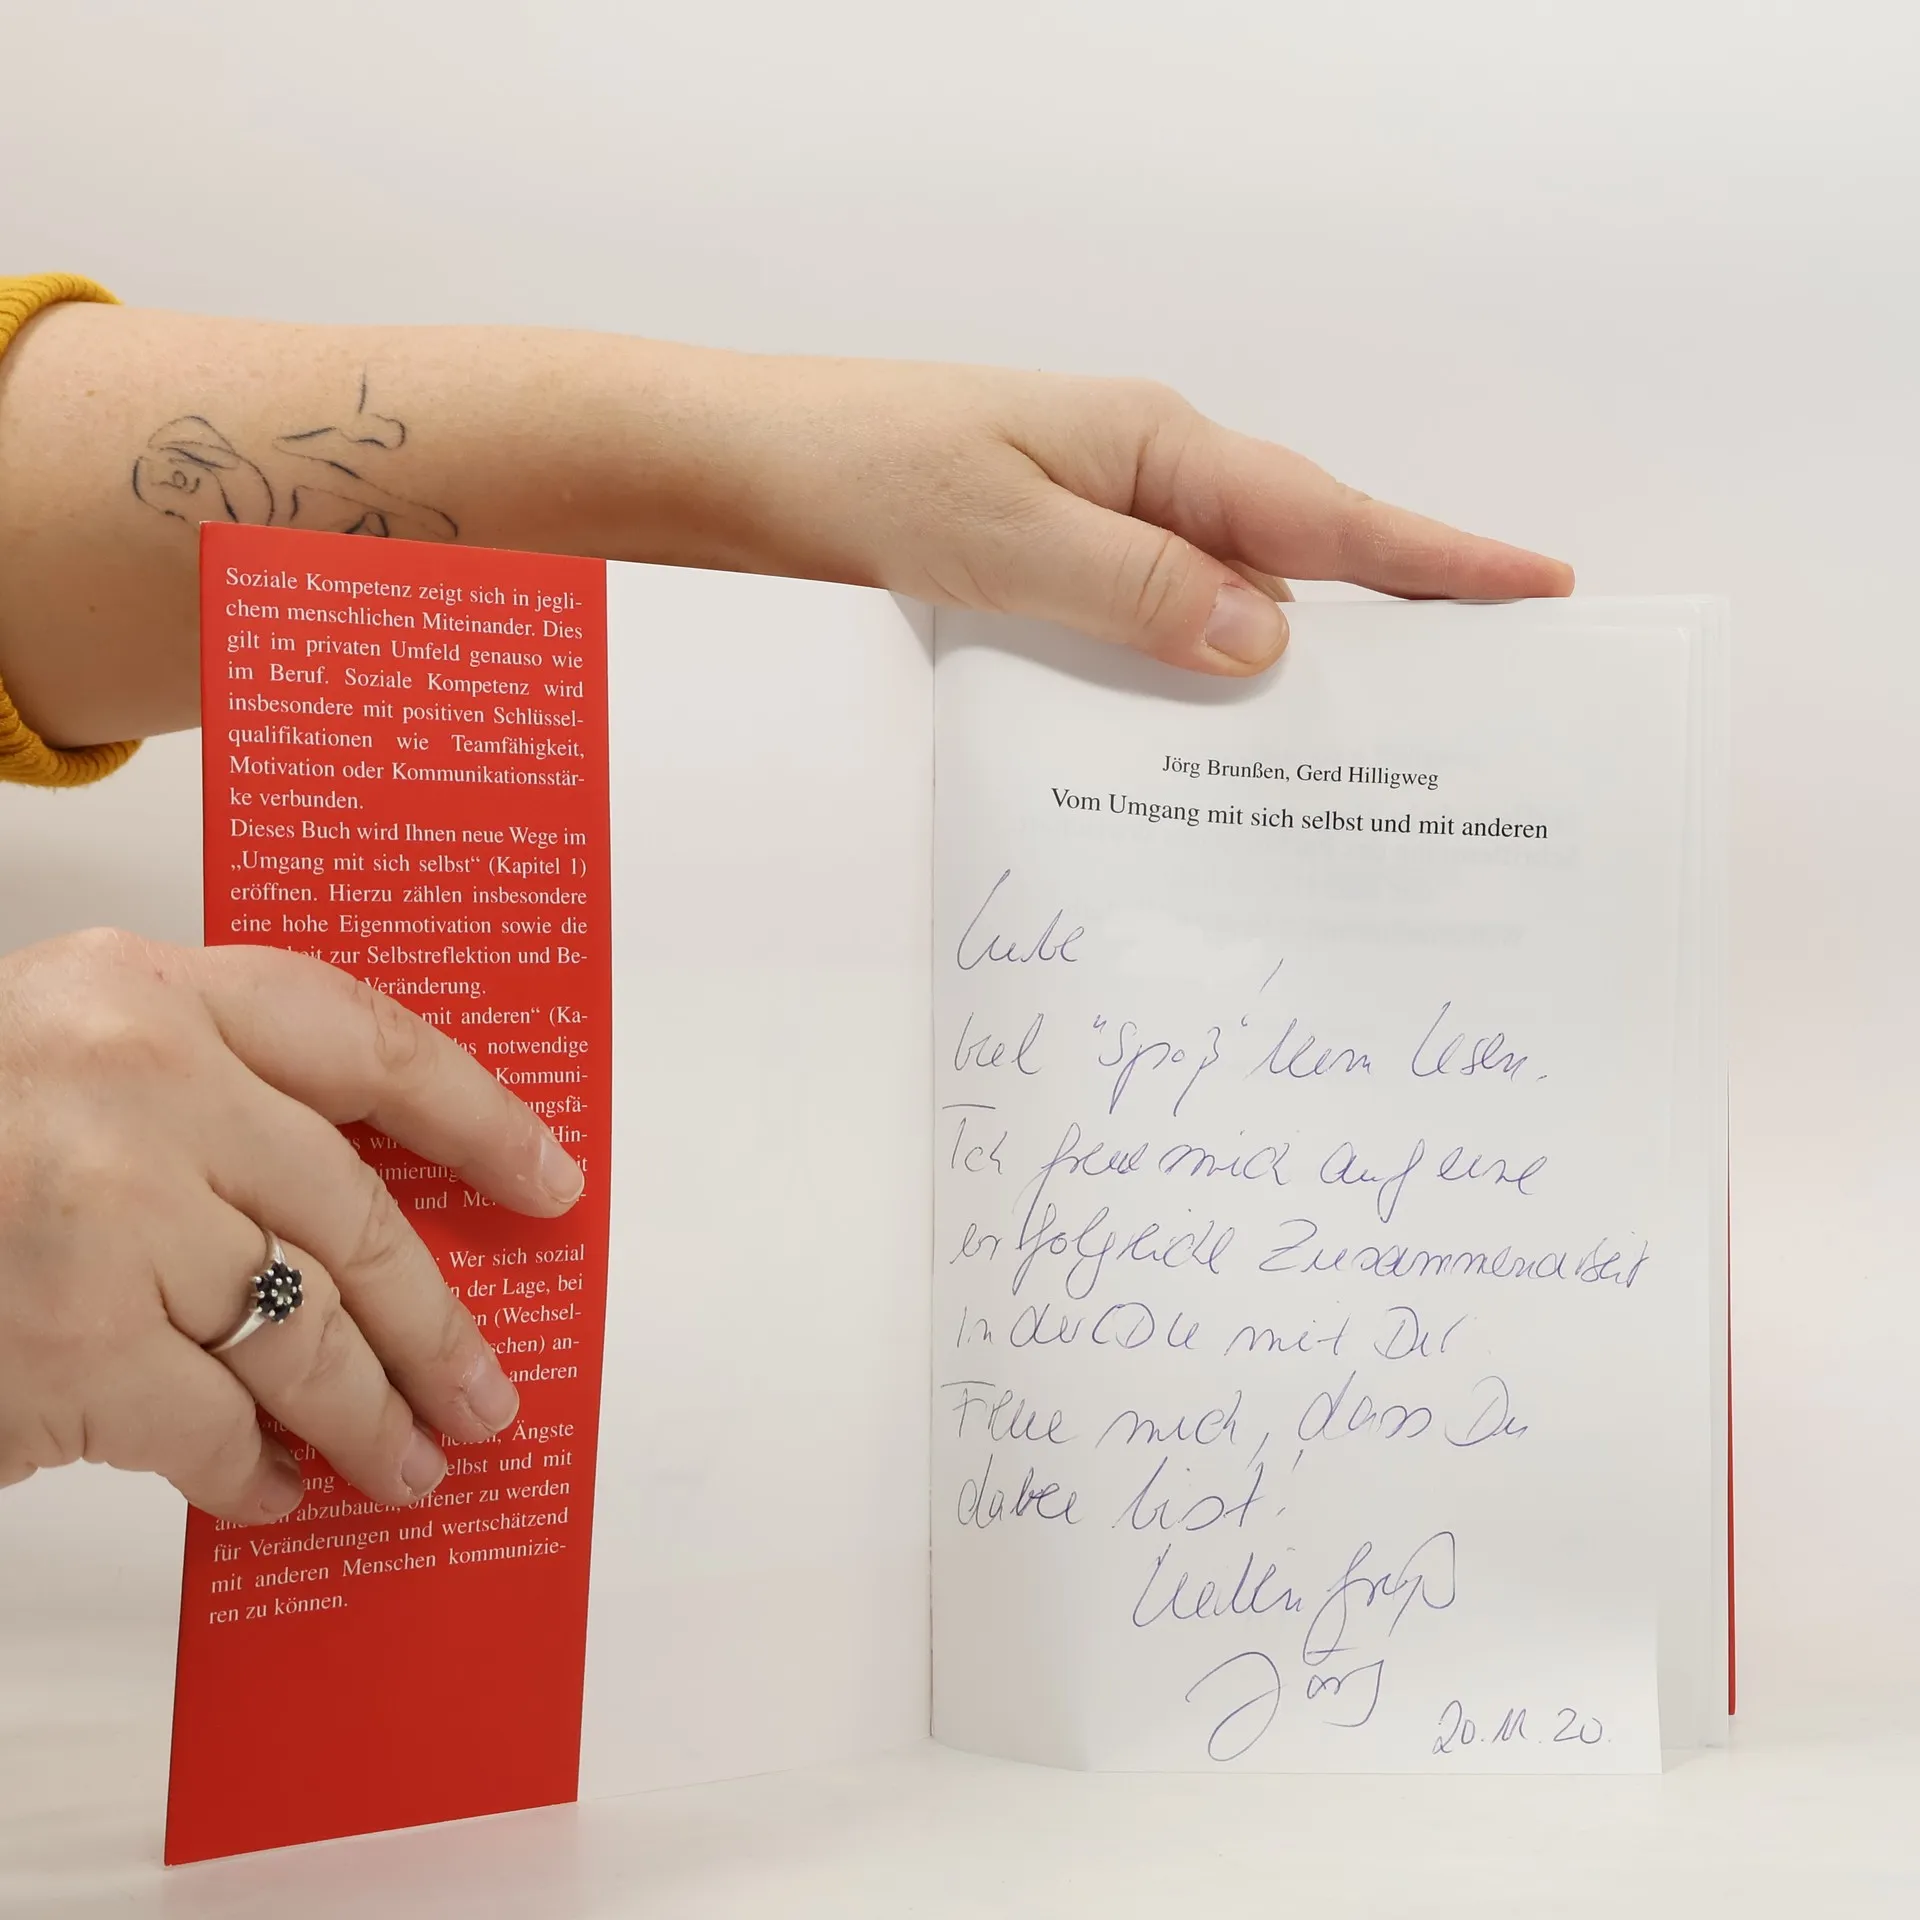 Soziale Kompetenz zeigt sich in jegli-
chem menschlichen Miteinander. Dies
gilt im privaten Umfeld genauso wie
im Beruf. Soziale Kompetenz wird
insbesondere mit positiven Schlüssel-
qualifikationen wie Teamfähigkeit,
Motivation oder Kommunikationsstär-
ke verbunden.
Dieses Buch wird Ihnen neue Wege im
„Umgang mit sich selbst“ (Kapitel 1)
eröffnen. Hierzu zählen insbesondere
eine hohe Eigenmotivation sowie die
zur Selbstreflektion und Be-
Veränderung.
mit anderen“ (Ka-
notwendige
Kommuni-
ungsfä-
Hin-
und
Wer sich sozial
der Lage, bei
(Wechsel-
schen) an-
anderen
Ängste
elbst und mit
abzubauen, offener zu werden
für Veränderungen und wertschätzend
mit anderen Menschen kommunizie-
ren zu können.
Jörg Brunßen, Gerd Hilligweg
Vom Umgang mit sich selbst und mit anderen
Liebe ,
viel "Spaß" beim Lesen.
Ich freue mich auf eine
erfolgreiche Zusammenarbeit
in der mit Dir
Freue mich, dass Du
dabei bist!
Lieben Gruß
Jörg
20.11.20.